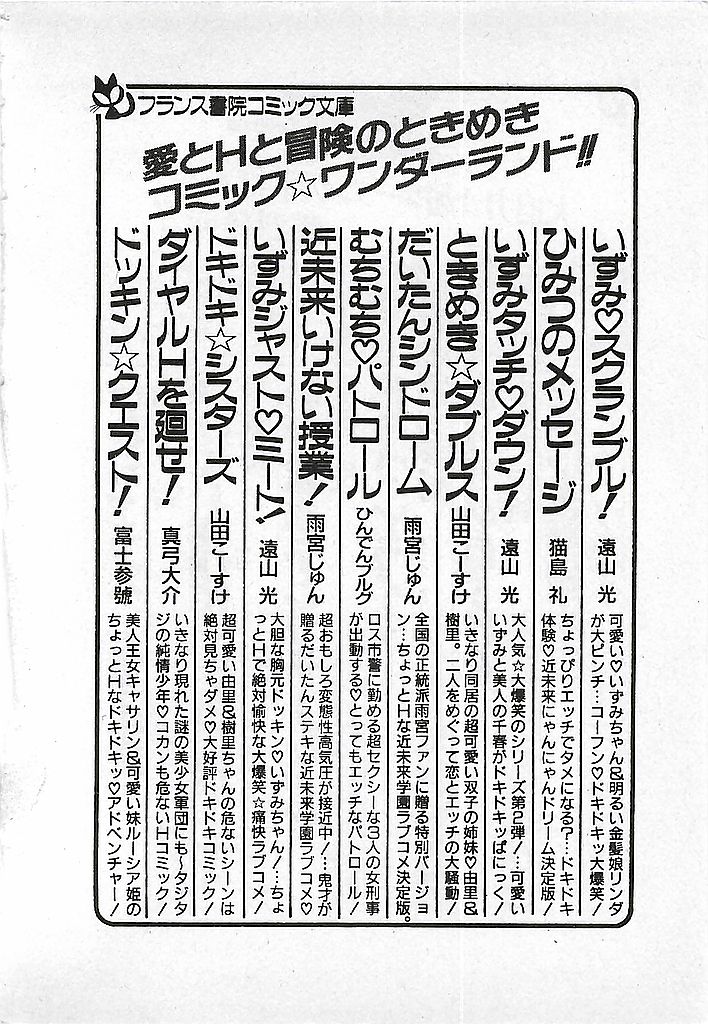 フランス書院コミック文庫
愛とHと冒険のときめき
コミック☆ワンダーランド!!
いずみ♡スクランブル！
遠山 光
可愛い♡いずみちゃん&明るい金髪娘リンダ
が大ピンチ…コーフン♡ドキドキッ大爆笑！
ひみつのメッセージ
猫島 礼
ちょっぴりエッチでタメになる？…ドキドキ
体験♡近未来にゃんにゃんドリーム決定版！
いずみタッチ♡ダウン！
遠山 光
大人気☆大爆笑のシリーズ第2弾！…可愛い
いずみと美人の千春がドキドキッぱにっく！
ときめき☆ダブルス
山田こーすけ
いきなり同居の超可愛い双子の姉妹♡由里&
樹里。二人をめぐって恋とエッチの大騒動！
だいたんシンドローム
雨宮じゅん
全国の正統派雨宮ファンに贈る特別バージョ
ン…ちょっとHな近未来学園ラブコメ決定版。
むちむち♡パトロール
ひんでんブルグ
ロス市警に勤める超セクシーな3人の女刑事
が出動する♡とってもエッチなパトロール！
近未来いけない授業！
雨宮じゅん
超おもしろ変態性高気圧が接近中！…鬼才が
贈るだいたんステキな近未来学園ラブコメ♡
いずみジャスト♡ミート！
遠山 光
大胆な胸元ドッキン♡いずみちゃん！…ちょ
っとHで絶対愉快な大爆笑☆痛快ラブコメ！
ドキドキ☆シスターズ
山田こーすけ
超可愛い由里&樹里ちゃんの危ないシーンは
絶対見ちゃダメ♡大好評ドキドキコミック！
ダイヤルHを廻せ！
真弓大介
いきなり現れた謎の美少女軍団にも～タジタ
ジの純情少年♡コカンも危ないHコミック！
ドッキン☆クエスト！
富士参號
美人王女キャサリン&可愛い妹ルーシア姫の
ちょっとHなドキドキッ♡アドベンチャー！